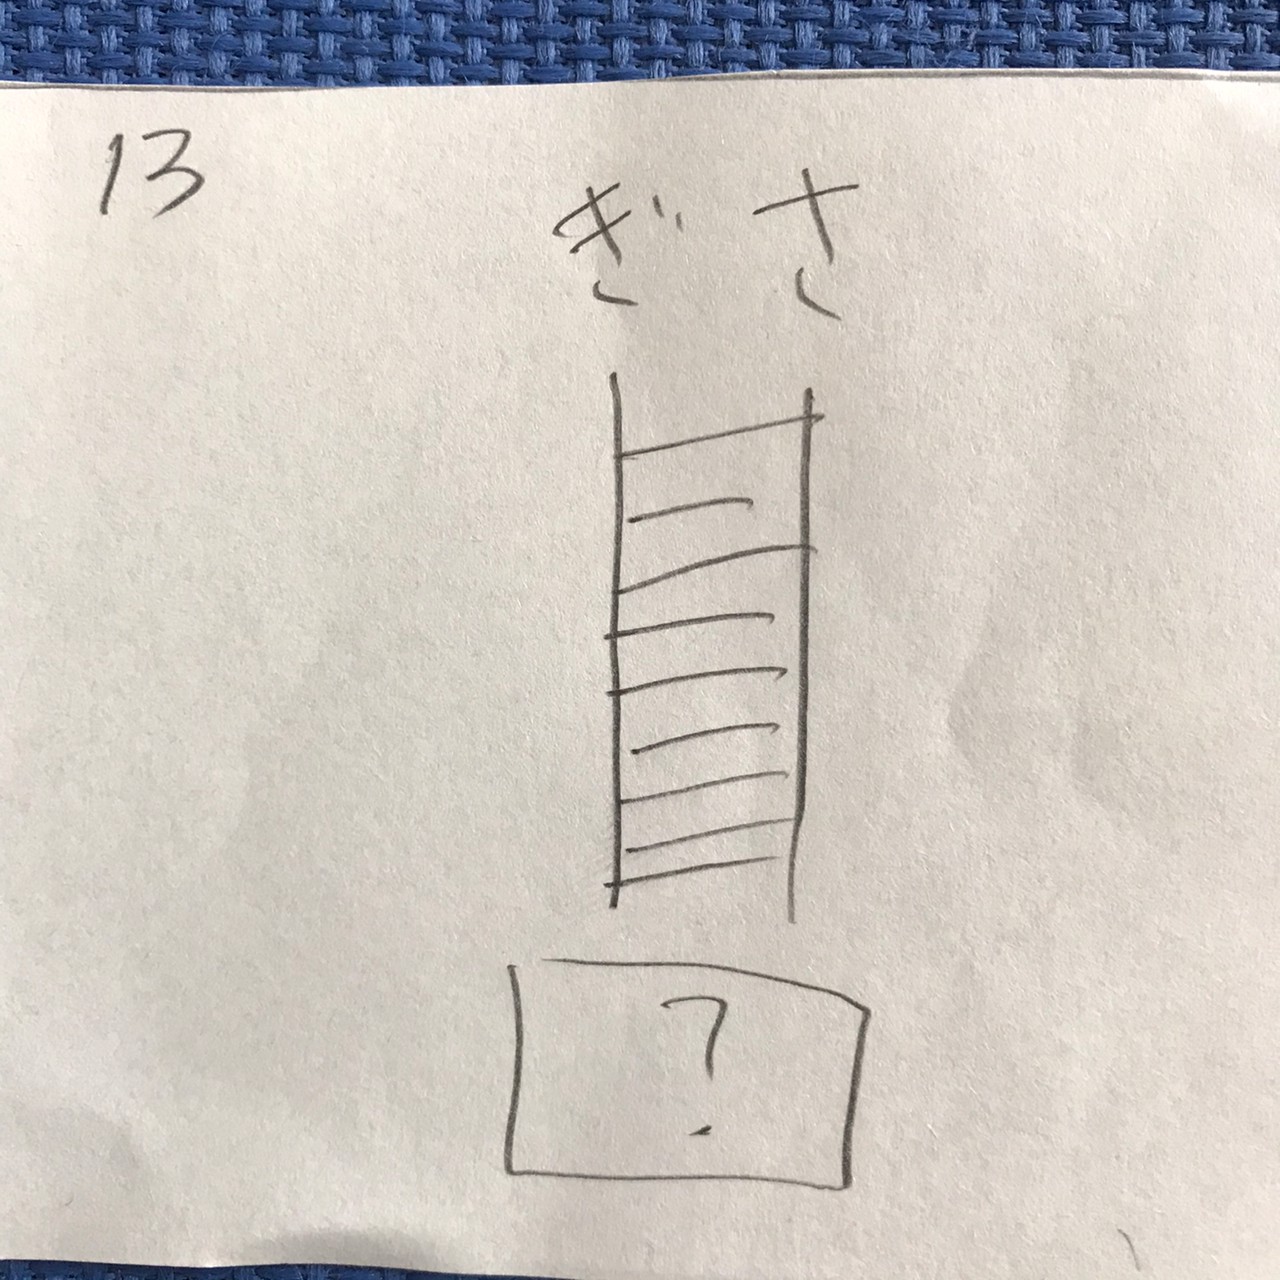 13
ぎ さ
?